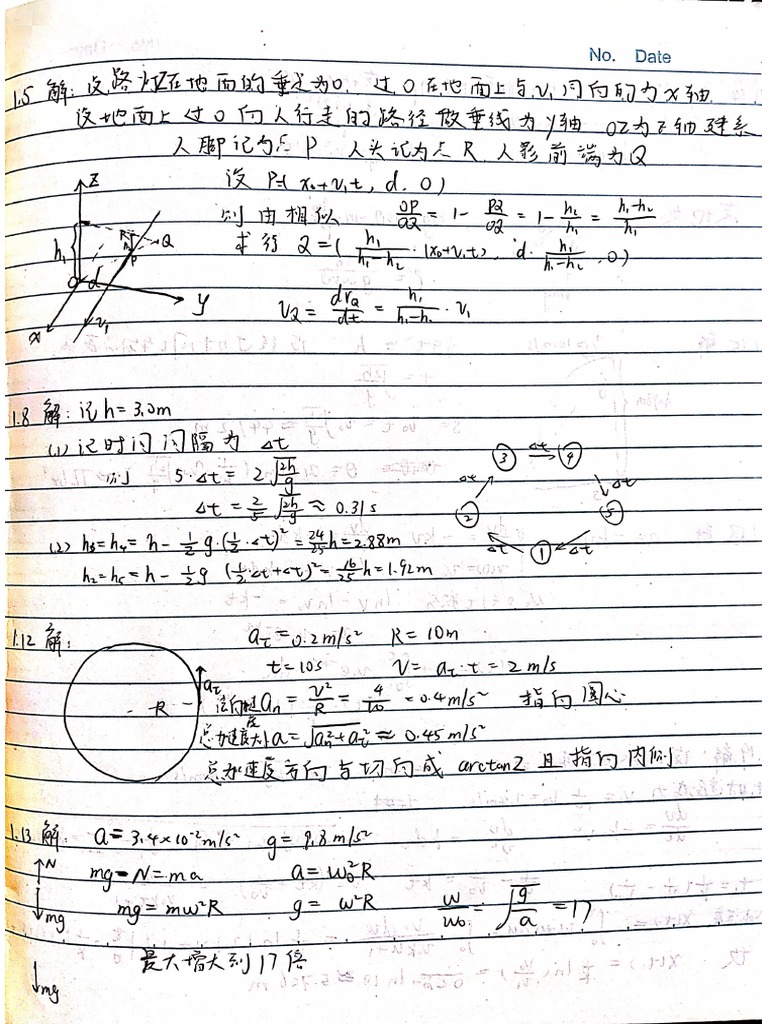 No. Date
1.5 解: 设路灯在地面的垂足为O. 过O在地面上与v₁同向的为x轴.
设地面上过O向人行走的路径做垂线为y轴 OZ为z轴建系
人脚记为点P 人头记为点R 人影前端为Q
设 P=(x₀+v₁t, d, 0)
则由相似 OP/OQ = 1 - PQ/OQ = 1 - h₂/h₁ = (h₁-h₂)/h₁
求得 Q=( h₁/(h₁-h₂) · (x₀+v₁t), d· h₁/(h₁-h₂), 0)
v_Q = dr_Q/dt = h₁/(h₁-h₂) · v₁
z h₁ R h₂ Q P O d y x v₁
1.8 解: 记h=3.0m
(1) 记时间间隔为 Δt
则 5·Δt = 2√(2h/g)
Δt = 2/5 √(2h/g) ≈ 0.31s
(2) h₃=h₄= h - 1/2 g·(1/2·Δt)² = 24/25 h = 2.88m
h₂=h₅= h - 1/2 g (1/2 Δt+Δt)² = 16/25 h = 1.92m
③ Δt ④
Δt Δt
② ⑤
Δt ① Δt
1.12 解: a_τ = 0.2m/s² R = 10m
t=10s V = a_τ·t = 2m/s
R a_τ
a_n = V²/R = 4/10 = 0.4m/s² 指向圆心
总加速度大小a = √(a_n²+a_τ²) ≈ 0.45m/s²
总加速度方向与切向成 arctan2 且指向内侧
1.13 解: a = 3.4×10⁻²m/s² g = 9.8m/s²
N mg
mg-N=ma a = ω₀²R
mg = mω²R g = ω²R ω/ω₀ = √(g/a) = 17
最大增大到17倍
mg